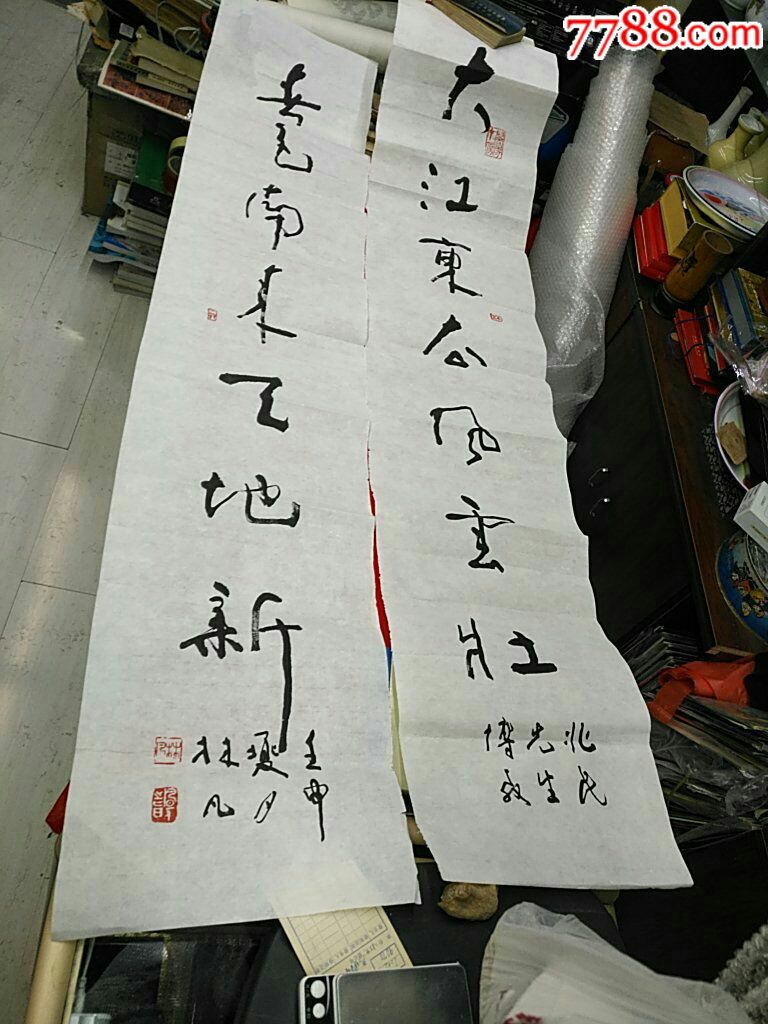 7788.com
大江東去風雲壯
兆民
先生
博教
春色南來天地新
壬申
夏月
林凡